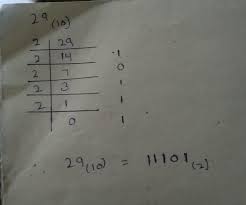 29(10)
2 | 29
2 | 14 1
2 | 7 0
2 | 3 1
2 | 1 1
0 1
∴ 29(10) = 11101(2)